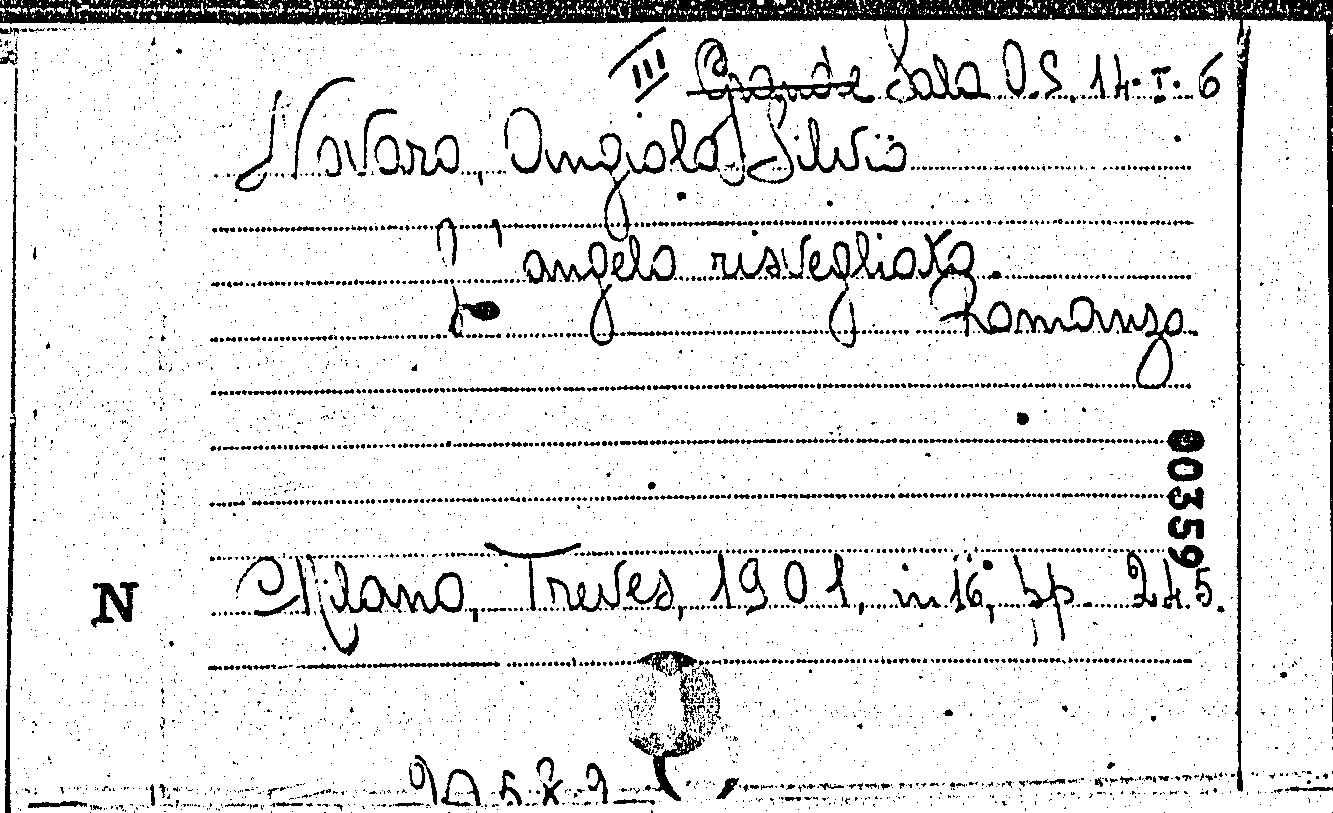 III Grande Sala O.S. 14.I.6
Novaro, Angiolo Silvio
L'angelo risvegliato.
Romanzo
00359
N
Milano, Treves, 1901, in 16°, pp. 245.